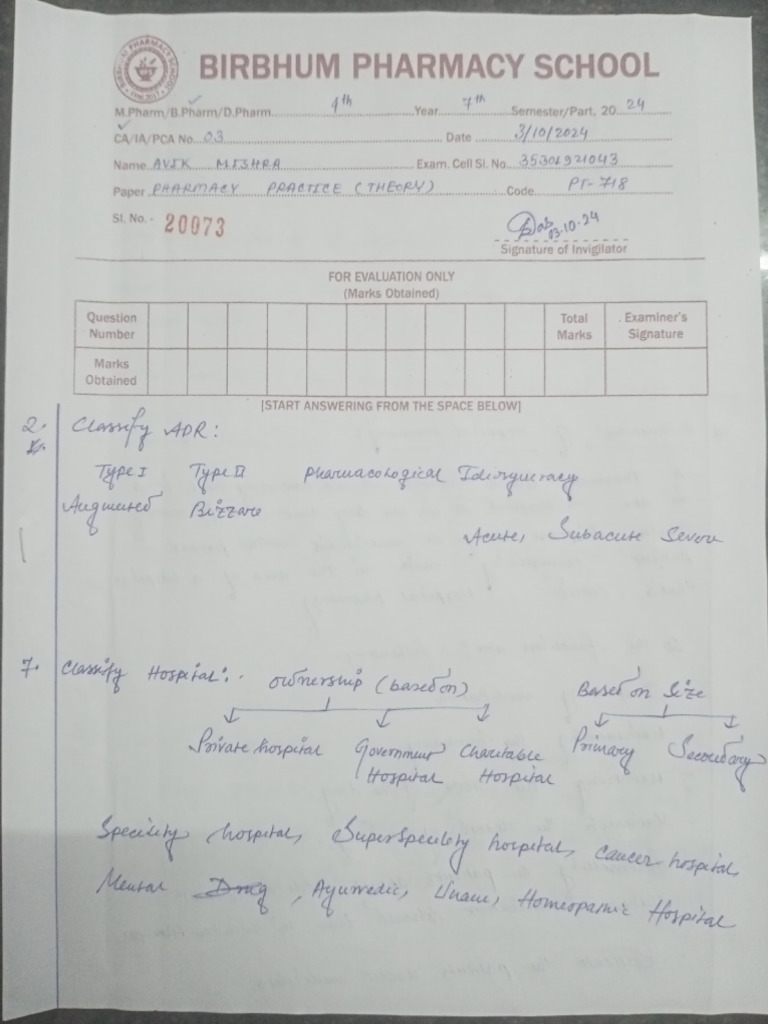 BIRBHUM PHARMACY SCHOOL
M.Pharm/B.Pharm/D.Pharm. 4th Year 7th Semester/Part, 2024
CA/IA/PCA No. 03 Date 3/10/2024
Name AVIK MISHRA Exam. Cell Sl. No. 35301921043
Paper PHARMACY PRACTICE (THEORY) Code PT-718
Sl. No. - 20073
03.10.24
Signature of Invigilator
FOR EVALUATION ONLY
(Marks Obtained)
Question Number Total Marks Examiner's Signature
Marks Obtained
[START ANSWERING FROM THE SPACE BELOW]
2. Classify ADR:
Type I Type II Pharmacological
Bizzare
Acute, Subacute Severe
7. Classify Hospital:. ownership (based on) Based on Size
Private hospital Government Hospital Charitable Hospital Primary Secondary
hospital, hospital, cancer hospital,
Mental Drug, Ayurvedic, Unani, Hospital